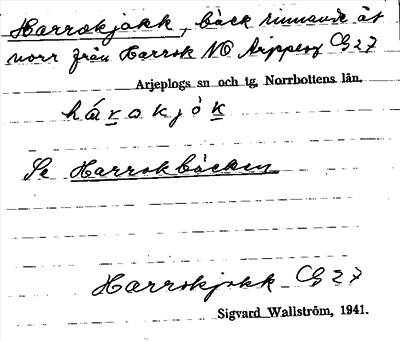 Harrokjåkk, bäck rinnande åt
norr från Harrok NO Arjeplog Cg 27
Arjeplogs sn och tg, Norrbottens län.
hárokjòk
Se Harrokbäcken
Harrokjåkk Cg 27
Sigvard Wallström, 1941.